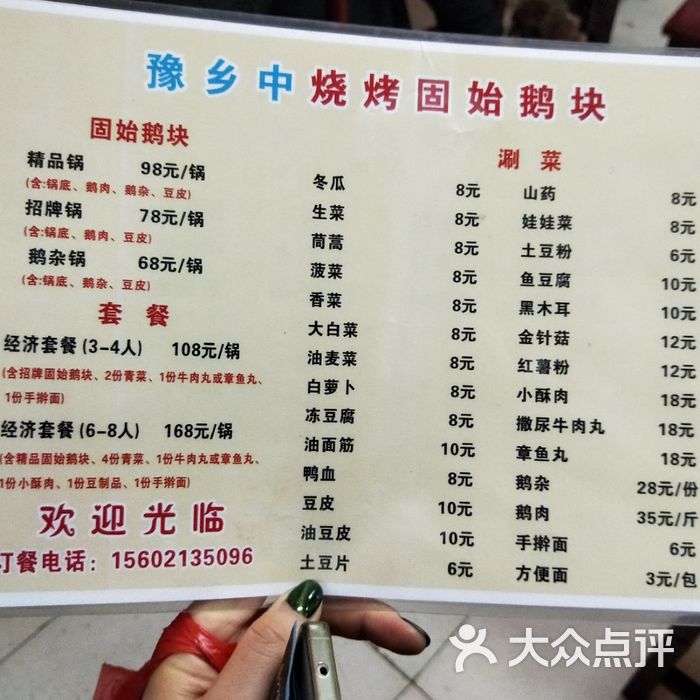 豫乡中烧烤固始鹅块
固始鹅块
精品锅 98元/锅
(含:锅底、鹅肉、鹅杂、豆皮)
招牌锅 78元/锅
(含:锅底、鹅肉、豆皮)
鹅杂锅 68元/锅
(含:锅底、鹅杂、豆皮)
套餐
经济套餐(3-4人) 108元/锅
(含招牌固始鹅块、2份青菜、1份牛肉丸或章鱼丸、
1份手擀面)
经济套餐(6-8人) 168元/锅
(含精品固始鹅块、4份青菜、1份牛肉丸或章鱼丸、
1份小酥肉、1份豆制品、1份手擀面)
欢迎光临
订餐电话：15602135096
涮菜
冬瓜 8元
生菜 8元
茼蒿 8元
菠菜 8元
香菜 8元
大白菜 8元
油麦菜 8元
白萝卜 8元
冻豆腐 8元
油面筋 10元
鸭血 8元
豆皮 10元
油豆皮 10元
土豆片 6元
山药 8元
娃娃菜 8元
土豆粉 6元
鱼豆腐 10元
黑木耳 10元
金针菇 12元
红薯粉 12元
小酥肉 18元
撒尿牛肉丸 18元
章鱼丸 18元
鹅杂 28元/份
鹅肉 35元/斤
手擀面 6元
方便面 3元/包
大众点评